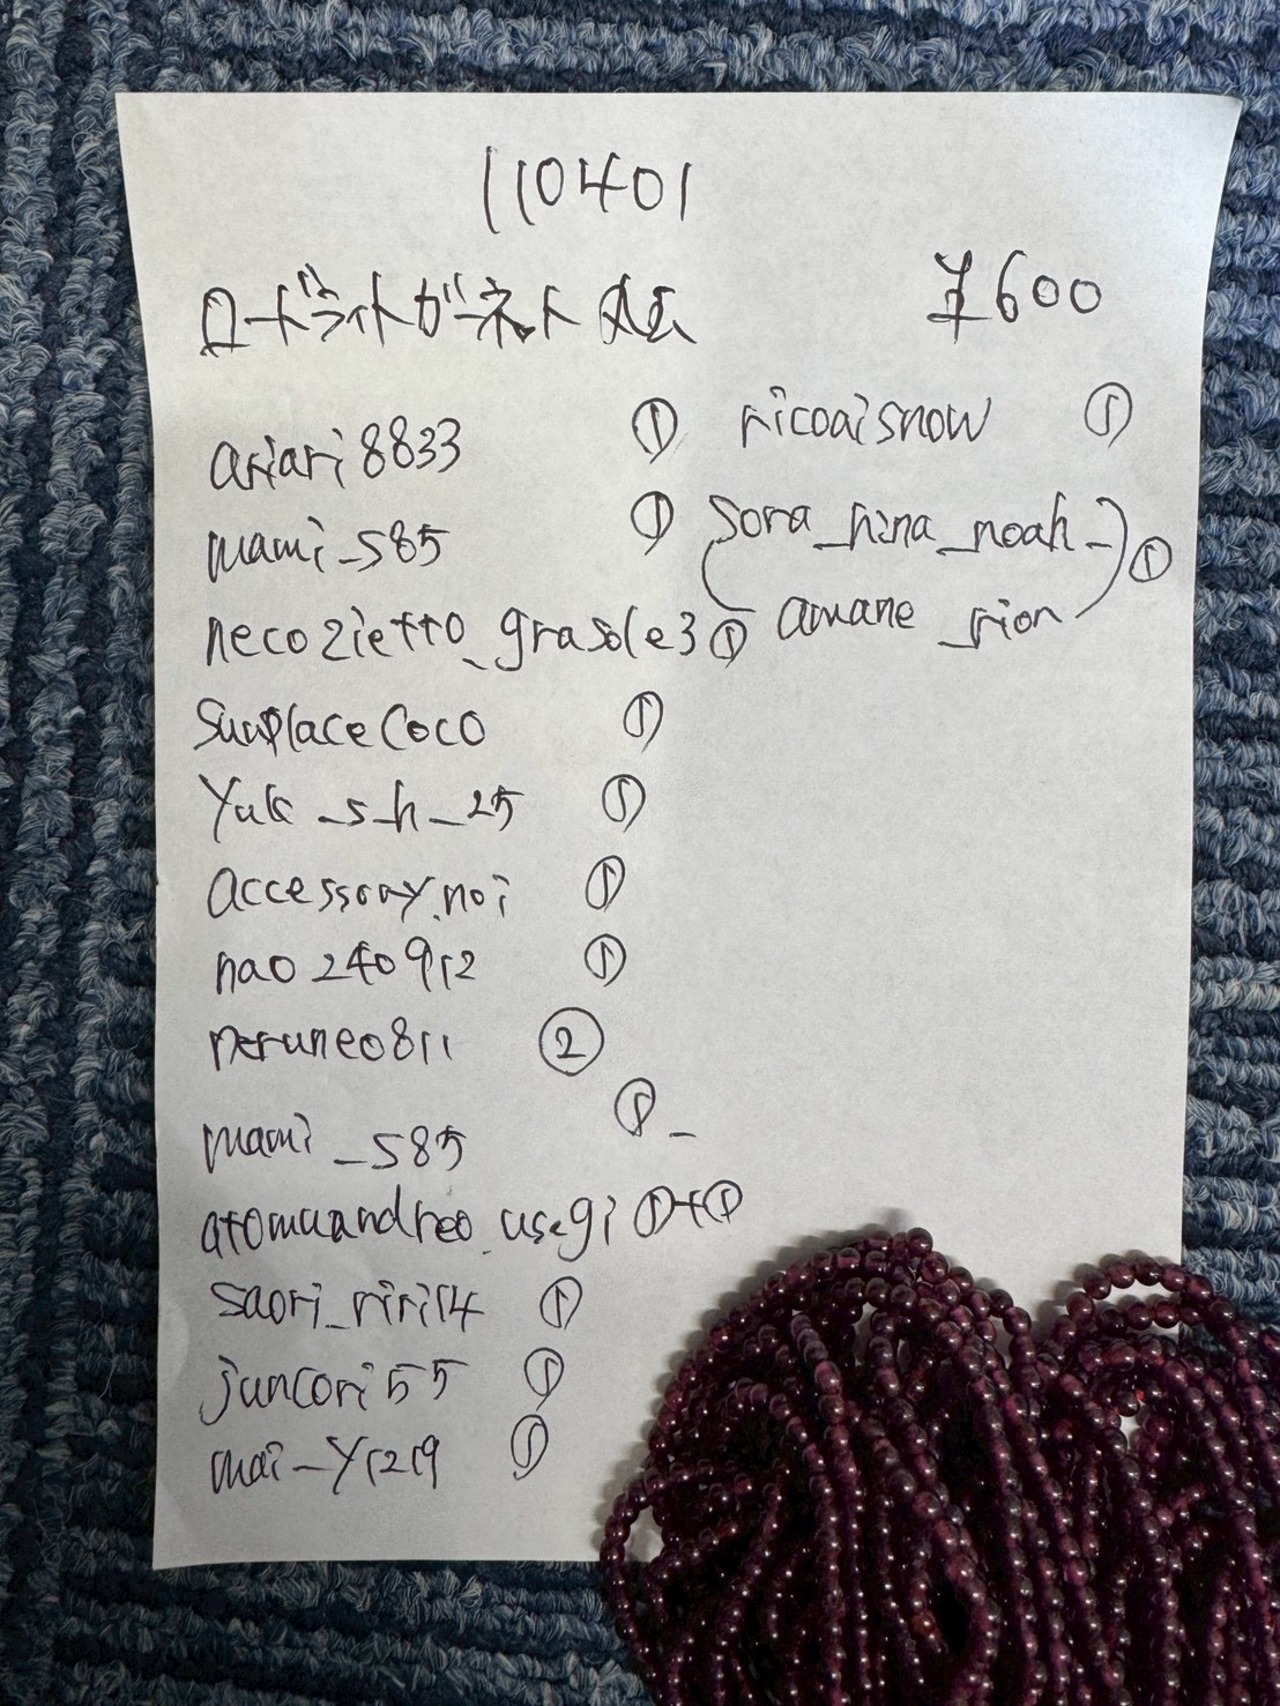 110401
ロードライトガーネット 丸玉
¥600
ariari8833 ①
mami_s85 ①
necozietto_grasole3 ①
sunplacecoco ①
yuk_s_h_25 ①
accessory.noi ①
nao240912 ①
neruneo811 ②
mami_s85 ①
atomuandreo.usagi ①+①
saori_riri14 ①
juncori55 ①
mai_y1219 ①
ricoaisnow ①
sora_hina_noah_ ①
amane_rion